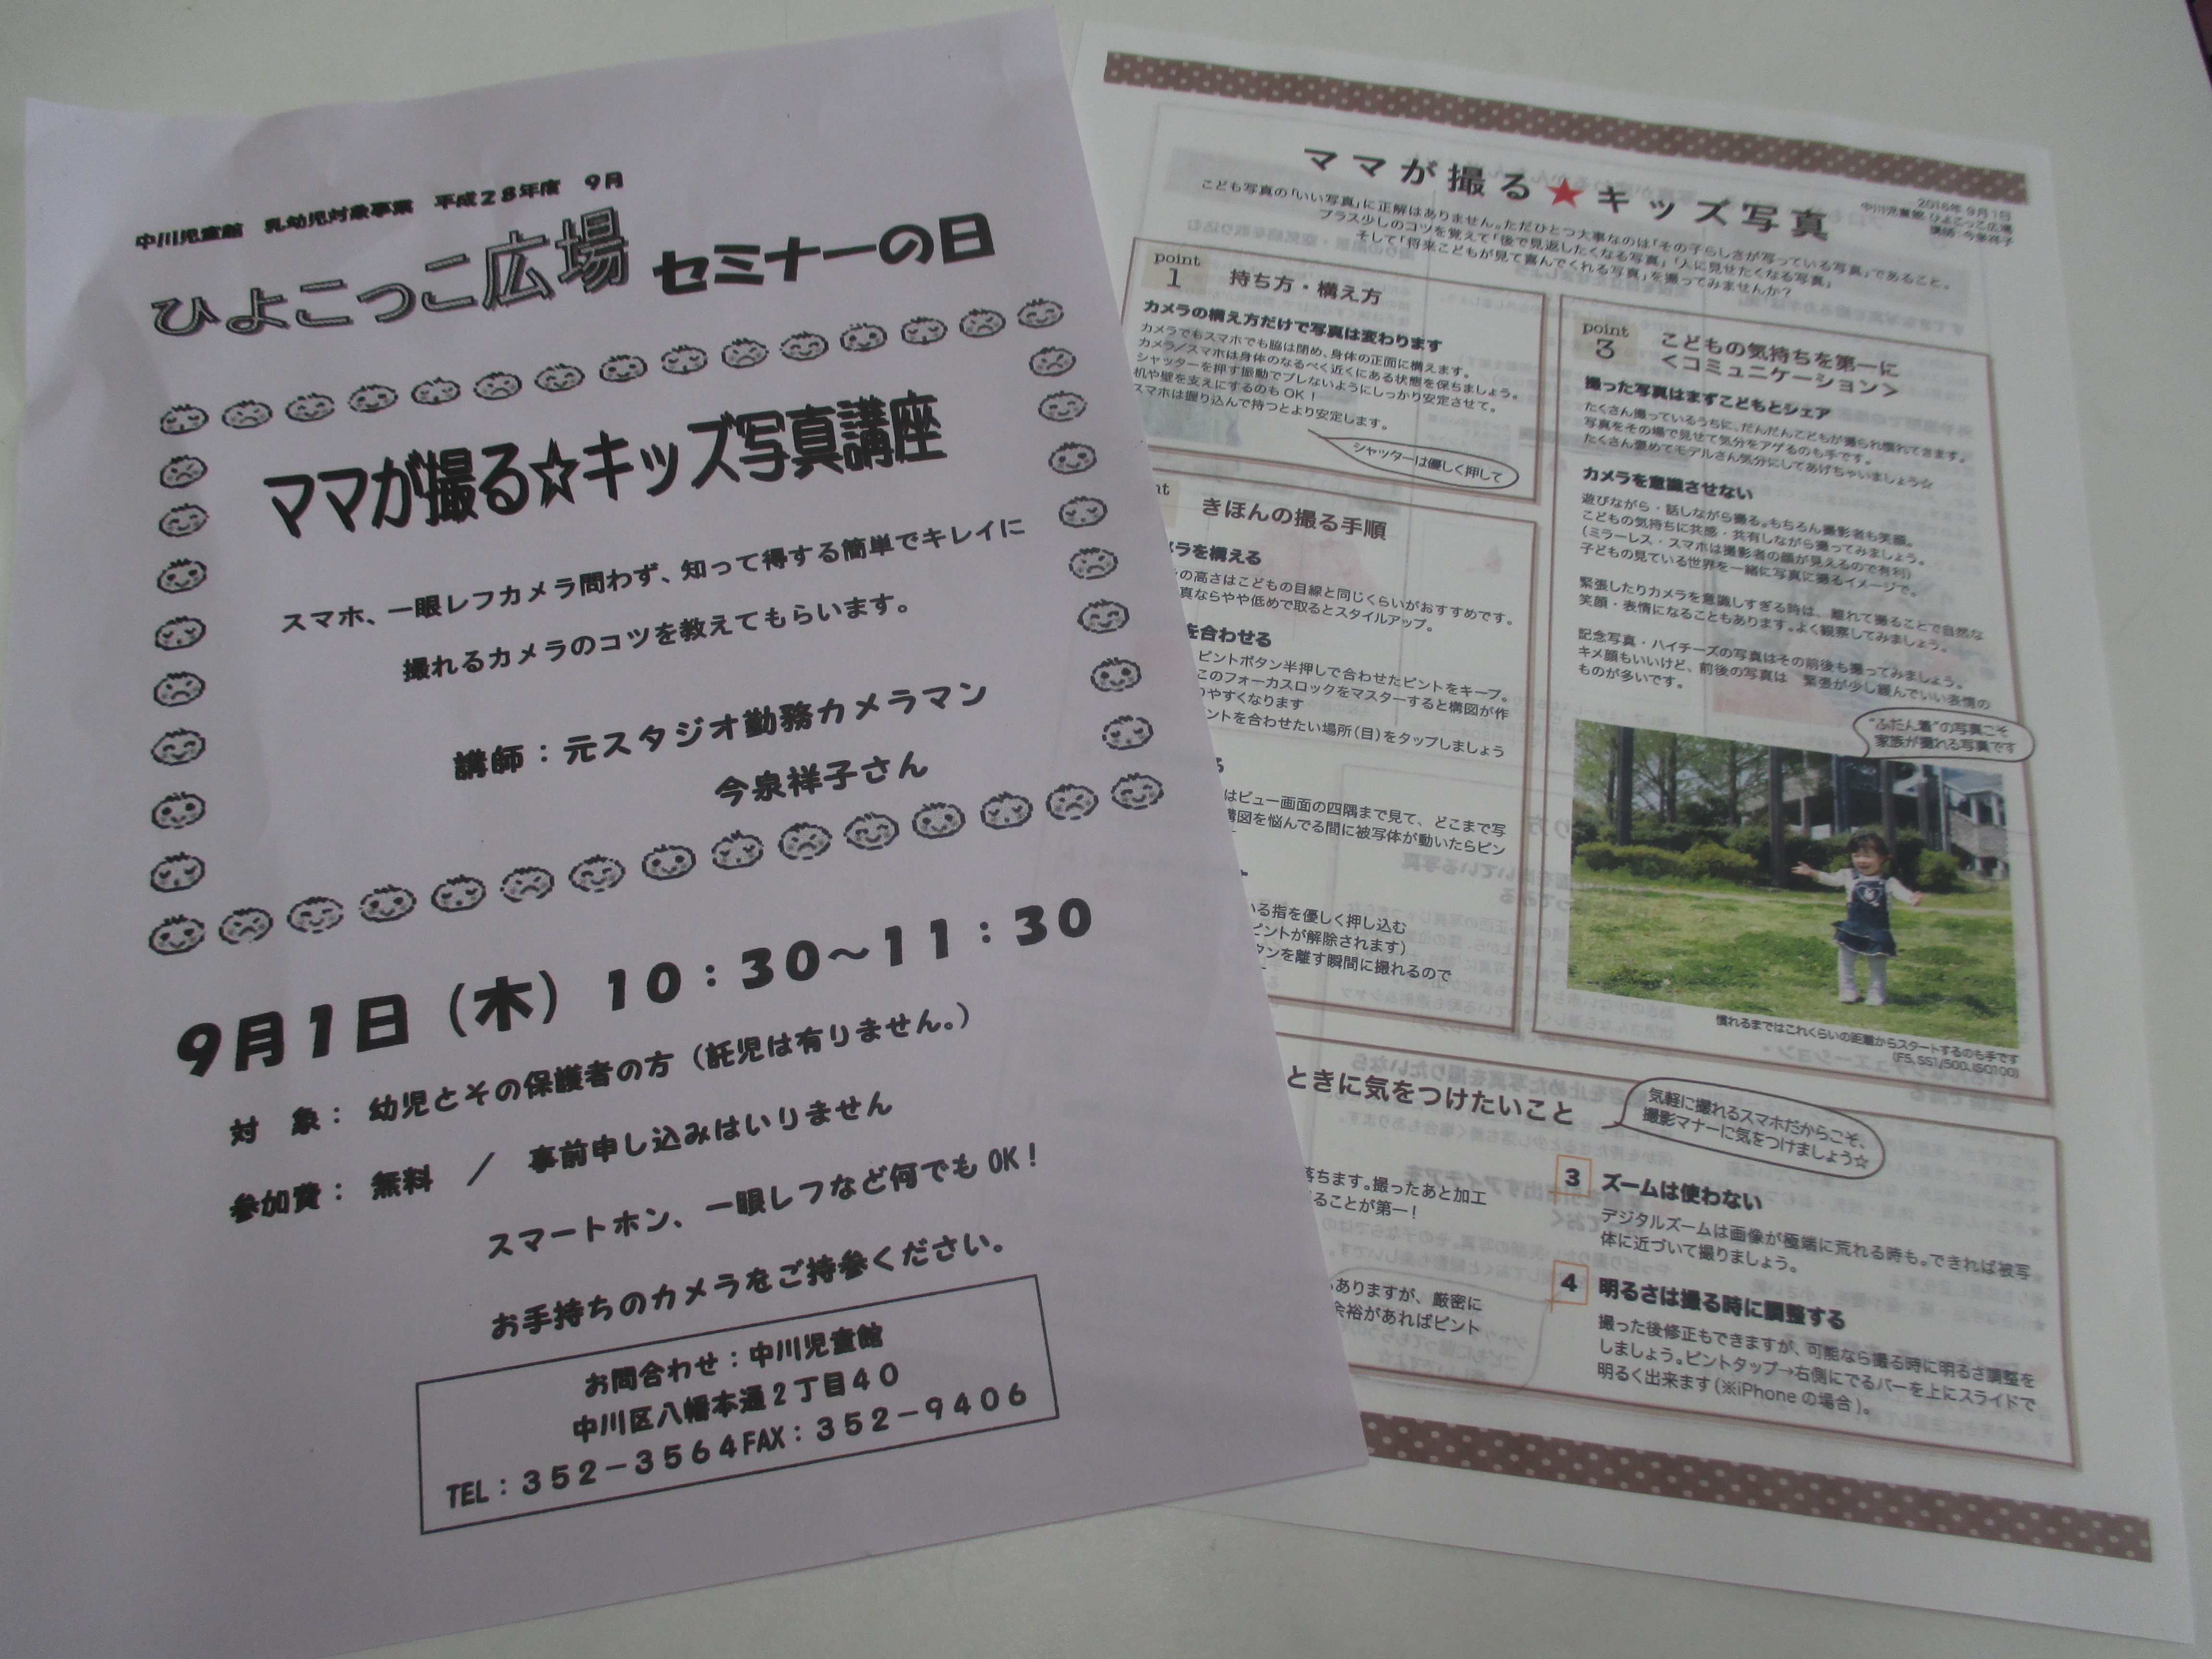 中川児童館 乳幼児対象事業 平成28年度 9月
ひよこっこ広場 セミナーの日
ママが撮る☆キッズ写真講座
スマホ、一眼レフカメラ問わず、知って得する簡単でキレイに
撮れるカメラのコツを教えてもらいます。
講師：元スタジオ勤務カメラマン
今泉祥子さん
9月1日（木）10：30～11：30
対 象： 幼児とその保護者の方（託児は有りません。）
参加費： 無料 ／ 事前申し込みはいりません
スマートホン、一眼レフなど何でもOK！
お手持ちのカメラをご持参ください。
お問合わせ：中川児童館
中川区八幡本通2丁目40
TEL：352－3564 FAX：352－9406
ママが撮る★キッズ写真
2016年 9月1日
中川児童館 ひよこっこ広場
講師 今泉祥子
こども写真の「いい写真」に正解はありません。ただひとつ大事なのは「その子らしさが写っている写真」であること。
プラス少しのコツを覚えて「後で見返したくなる写真」「人に見せたくなる写真」
そして「将来こどもが見て喜んでくれる写真」を撮ってみませんか？
point 1 持ち方・構え方
カメラの構え方だけで写真は変わります
カメラでもスマホでも脇は閉め、身体の正面に構えます。
カメラ/スマホは身体のなるべく近くにある状態を保ちましょう。
シャッターを押す振動でブレないようにしっかり安定させて。
机や壁を支えにするのもOK！
スマホは握り込んで持つとより安定します。
シャッターは優しく押して
きほんの撮る手順
ラを構える
の高さはこどもの目線と同じくらいがおすすめです。
真ならやや低めで取るとスタイルアップ。
を合わせる
ピントボタン半押しで合わせたピントをキープ。
このフォーカスロックをマスターすると構図が作
りやすくなります
ントを合わせたい場所(目)をタップしましょう
る
はビュー画面の四隅まで見て、どこまで写
構図を悩んでる間に被写体が動いたらピン
いる指を優しく押し込む
ピントが解除されます)
タンを離す瞬間に撮れるので
point 3 こどもの気持ちを第一に
＜コミュニケーション＞
撮った写真はまずこどもとシェア
たくさん撮っているうちに、だんだんこどもが撮られ慣れてきます。
写真をその場で見せて気分をアゲるのも手です。
たくさん褒めてモデルさん気分にしてあげちゃいましょう☆
カメラを意識させない
遊びながら・話しながら撮る。もちろん撮影者も笑顔。
こどもの気持ちに共感・共有しながら撮ってみましょう。
(ミラーレス・スマホは撮影者の顔が見えるので有利)
子どもの見ている世界を一緒に写真に撮るイメージで。
緊張したりカメラを意識しすぎる時は、離れて撮ることで自然な
笑顔・表情になることもあります。よく観察してみましょう。
記念写真・ハイチーズの写真はその前後も撮ってみましょう。
キメ顔もいいけど、前後の写真は 緊張が少し緩んでいい表情の
ものが多いです。
"ふだん着"の写真こそ
家族が撮れる写真です
慣れるまではこれくらいの距離からスタートするのも手です
(F5, SS1/500, ISO100)
ときに気をつけたいこと
気軽に撮れるスマホだからこそ、
撮影マナーに気をつけましょう☆
落ちます。撮ったあと加工
ることが第一！
もありますが、厳密に
余裕があればピント
3 ズームは使わない
デジタルズームは画像が極端に荒れる時も。できれば被写
体に近づいて撮りましょう。
4 明るさは撮る時に調整する
撮った後修正もできますが、可能なら撮る時に明るさ調整を
しましょう。ピントタップ→右側にでるバーを上にスライドで
明るく出来ます(※iPhoneの場合)。